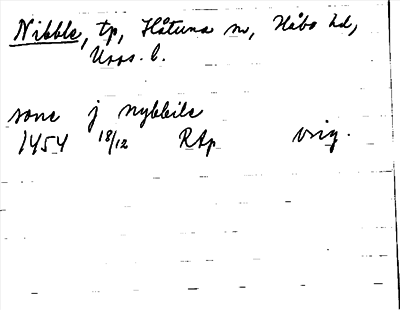 Nibble, tp, Håtuna sn, Håbo hd,
Upps. l.
sone j nybbile
1454 18/12 RAp orig.